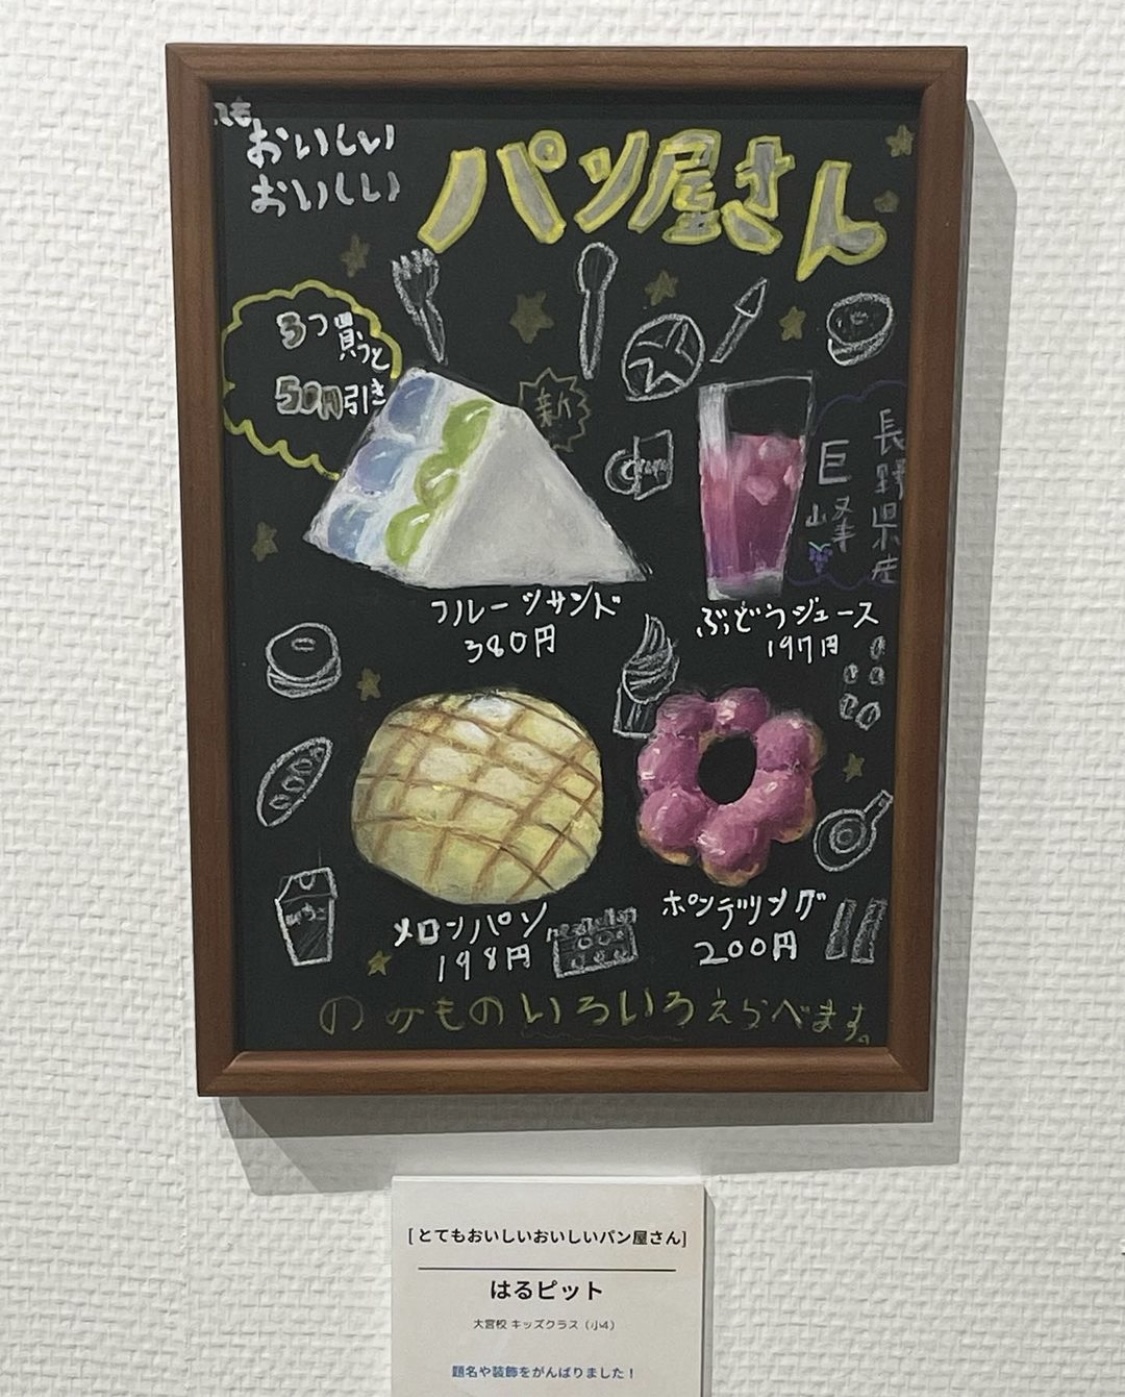 おいしい
おいしい
パン屋さん
3つ買うと
50円引き
新
長野県産
巨峰
フルーツサンド
380円
ぶどうジュース
197円
メロンパン
198円
ポンデリング
200円
のみものいろいろえらべます。
[とてもおいしいおいしいパン屋さん]
はるピット
大宮校 キッズクラス（小4）
題名や装飾をがんばりました！